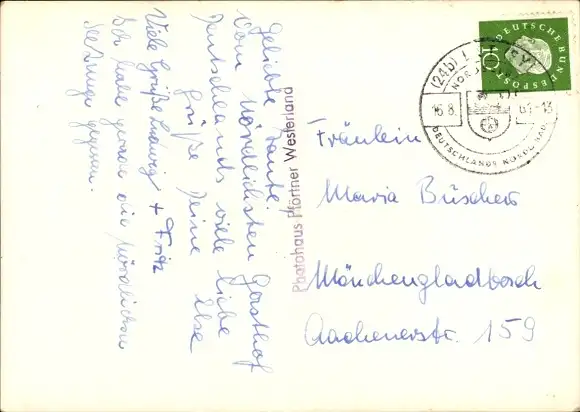 Geliebte Tante!
Vom nördlichsten Gasthof
Deutschlands viele liebe
Grüße Deine Else
Viele Grüße Ludwig + Fritz
Ich habe gerade die nördlichsten
Seezunge gegessen.
Photohaus Pförtner Westerland
DEUTSCHE BUNDESPOST
10
(24b) L
NORD
16.8. 61-13
DEUTSCHLANDS NORD
Fräulein
Maria Büschers
Mönchengladbach
Aachenerstr. 159